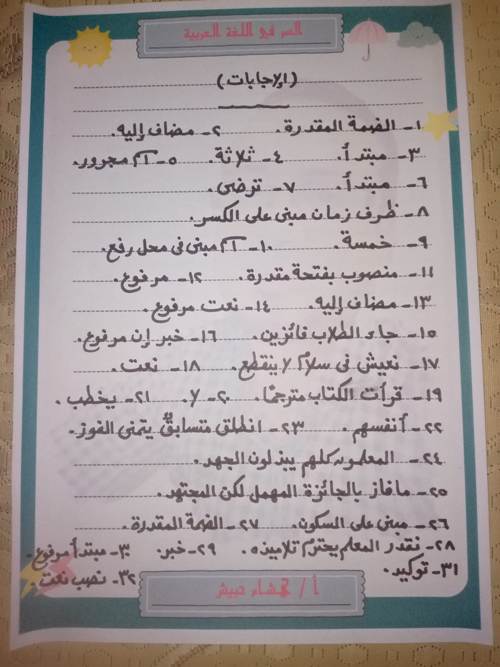 السر في اللغة العربية
(الإجابات)
١- الضمة المقدرة. ٢- مضاف إليه.
٣- مبتدأ. ٤- ثلاثة. ٥- اسم مجرور.
٦- مبتدأ. ٧- ترضى.
٨- ظرف زمان مبنى على الكسر.
٩- خمسة. ١٠- اسم مبنى فى محل رفع.
١١- منصوب بفتحة مقدرة. ١٢- مرفوع.
١٣- مضاف إليه. ١٤- نعت مرفوع.
١٥- جاء الطلاب فائزين. ١٦- خبر إن مرفوع.
١٧- نعيش فى سلام لا ينقطع. ١٨- نعت.
١٩- قرأت الكتاب مترجمًا. ٢٠- لا. ٢١- يخطب.
٢٢- أنفسهم. ٢٣- انطلق متسابقٌ يتمنى الفوز.
٢٤- المعلمون كلهم يبذلون الجهد.
٢٥- ما فاز بالجائزة المهمل لكن المجتهد.
٢٦- مبنى على السكون. ٢٧- الضمة المقدرة.
٢٨- نقدر المعلم يحترم تلاميذه. ٢٩- خبر. ٣٠- مبتدأ مرفوع.
٣١- توكيد. ٣٢- نصب نعت.
أ / هشام حبيش